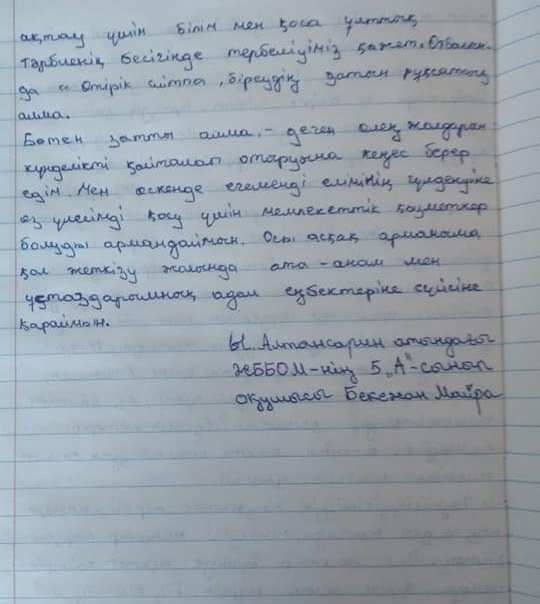 ақтау үшін білім мен қоса ұлттық
тәрбиенің бесігінде тербелуіміз қажет. Отбасын-
да "Өтірік айтпа, біреудің затын рұқсатсыз
алма.
Бөтен затты алма, - деген өлең жолдарын
күнделікті қайталап отыруына кеңес берер
едім. Мен өскенде егеменді елімнің гүлденуіне
өз үлесімді қосу үшін мемлекеттік қызметкер
болуды армандаймын. Осы асқақ арманыма
қол жеткізу жолында ата-анам мен
ұстаздарымның адал еңбектеріне сүйсіне
қараймын.
Ы. Алтынсарин атындағы
ЖББОМ-нің 5 "А"-сынып
оқушысы Бекежан Майра